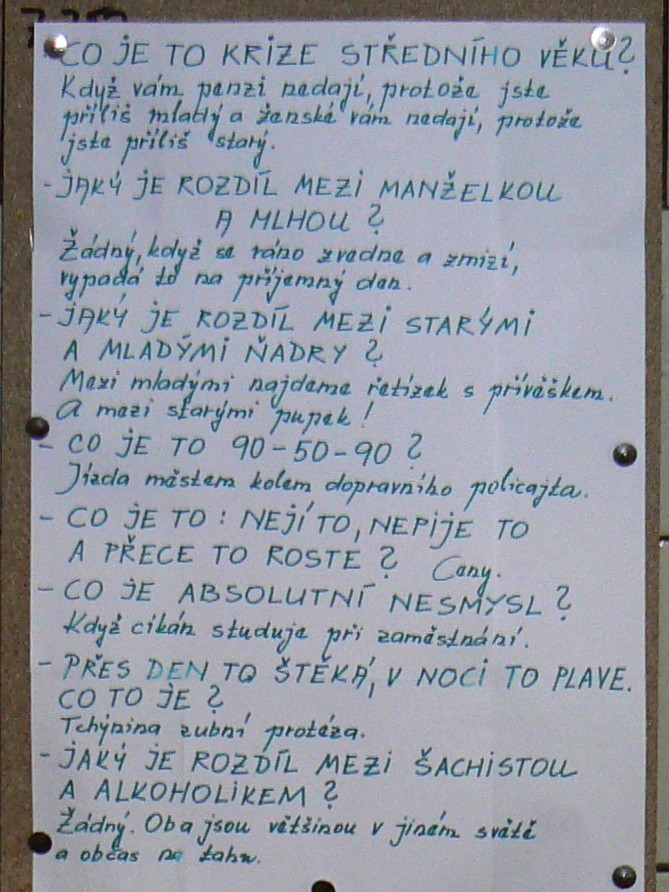 - CO JE TO KRIZE STŘEDNÍHO VĚKU?
Když vám penzi nedají, protože jste
příliš mladý a ženské vám nedají, protože
jste příliš starý.
- JAKÝ JE ROZDÍL MEZI MANŽELKOU
A MLHOU?
Žádný, když se ráno zvedne a zmizí,
vypadá to na příjemný den.
- JAKÝ JE ROZDÍL MEZI STARÝMI
A MLADÝMI ŇADRY?
Mezi mladými najdeme řetízek s přívěškem.
A mezi starými pupek!
- CO JE TO 90-50-90?
Jízda městem kolem dopravního policajta.
- CO JE TO: NEJÍ TO, NEPIJE TO
A PŘECE TO ROSTE? Ceny.
- CO JE ABSOLUTNÍ NESMYSL?
Když cikán studuje při zaměstnání.
- PŘES DEN TO ŠTĚKÁ, V NOCI TO PLAVE.
CO TO JE?
Tchýnina zubní protéza.
- JAKÝ JE ROZDÍL MEZI ŠACHISTOU
A ALKOHOLIKEM?
Žádný. Oba jsou většinou v jiném světě
a občas na tahu.